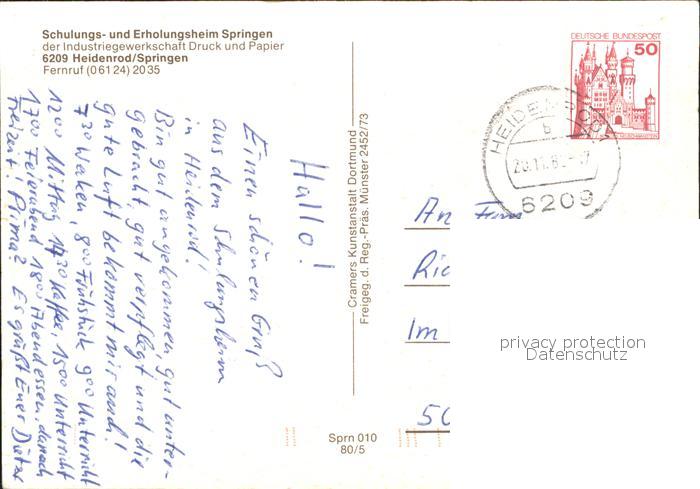 Schulungs- und Erholungsheim Springen
der Industriegewerkschaft Druck und Papier
6209 Heidenrod/Springen
Fernruf (0 61 24) 20 35
Hallo!
Einen schönen Gruß
aus dem Schulungsheim
in Heidenrod!
Bin gut angekommen, gut unter-
gebracht, gut verpflegt und die
gute Luft bekommt mir auch!
7 30 Wecken, 8 00 Frühstück 9 00 Unterricht
12 00 Mittag 14 30 Kaffee, 15 00 Unterricht
17 00 Feierabend 18 00 Abendessen, danach
Freizeit! Prima? Es grüßt Euer Dieter
Cramers Kunstanstalt Dortmund
Freigeg. d. Reg.-Präs. Münster 2452/73
Sprn 010
80/5
DEUTSCHE BUNDESPOST
50
HEIDENROD
b
6209
An
Im
50
privacy protection
Datenschutz